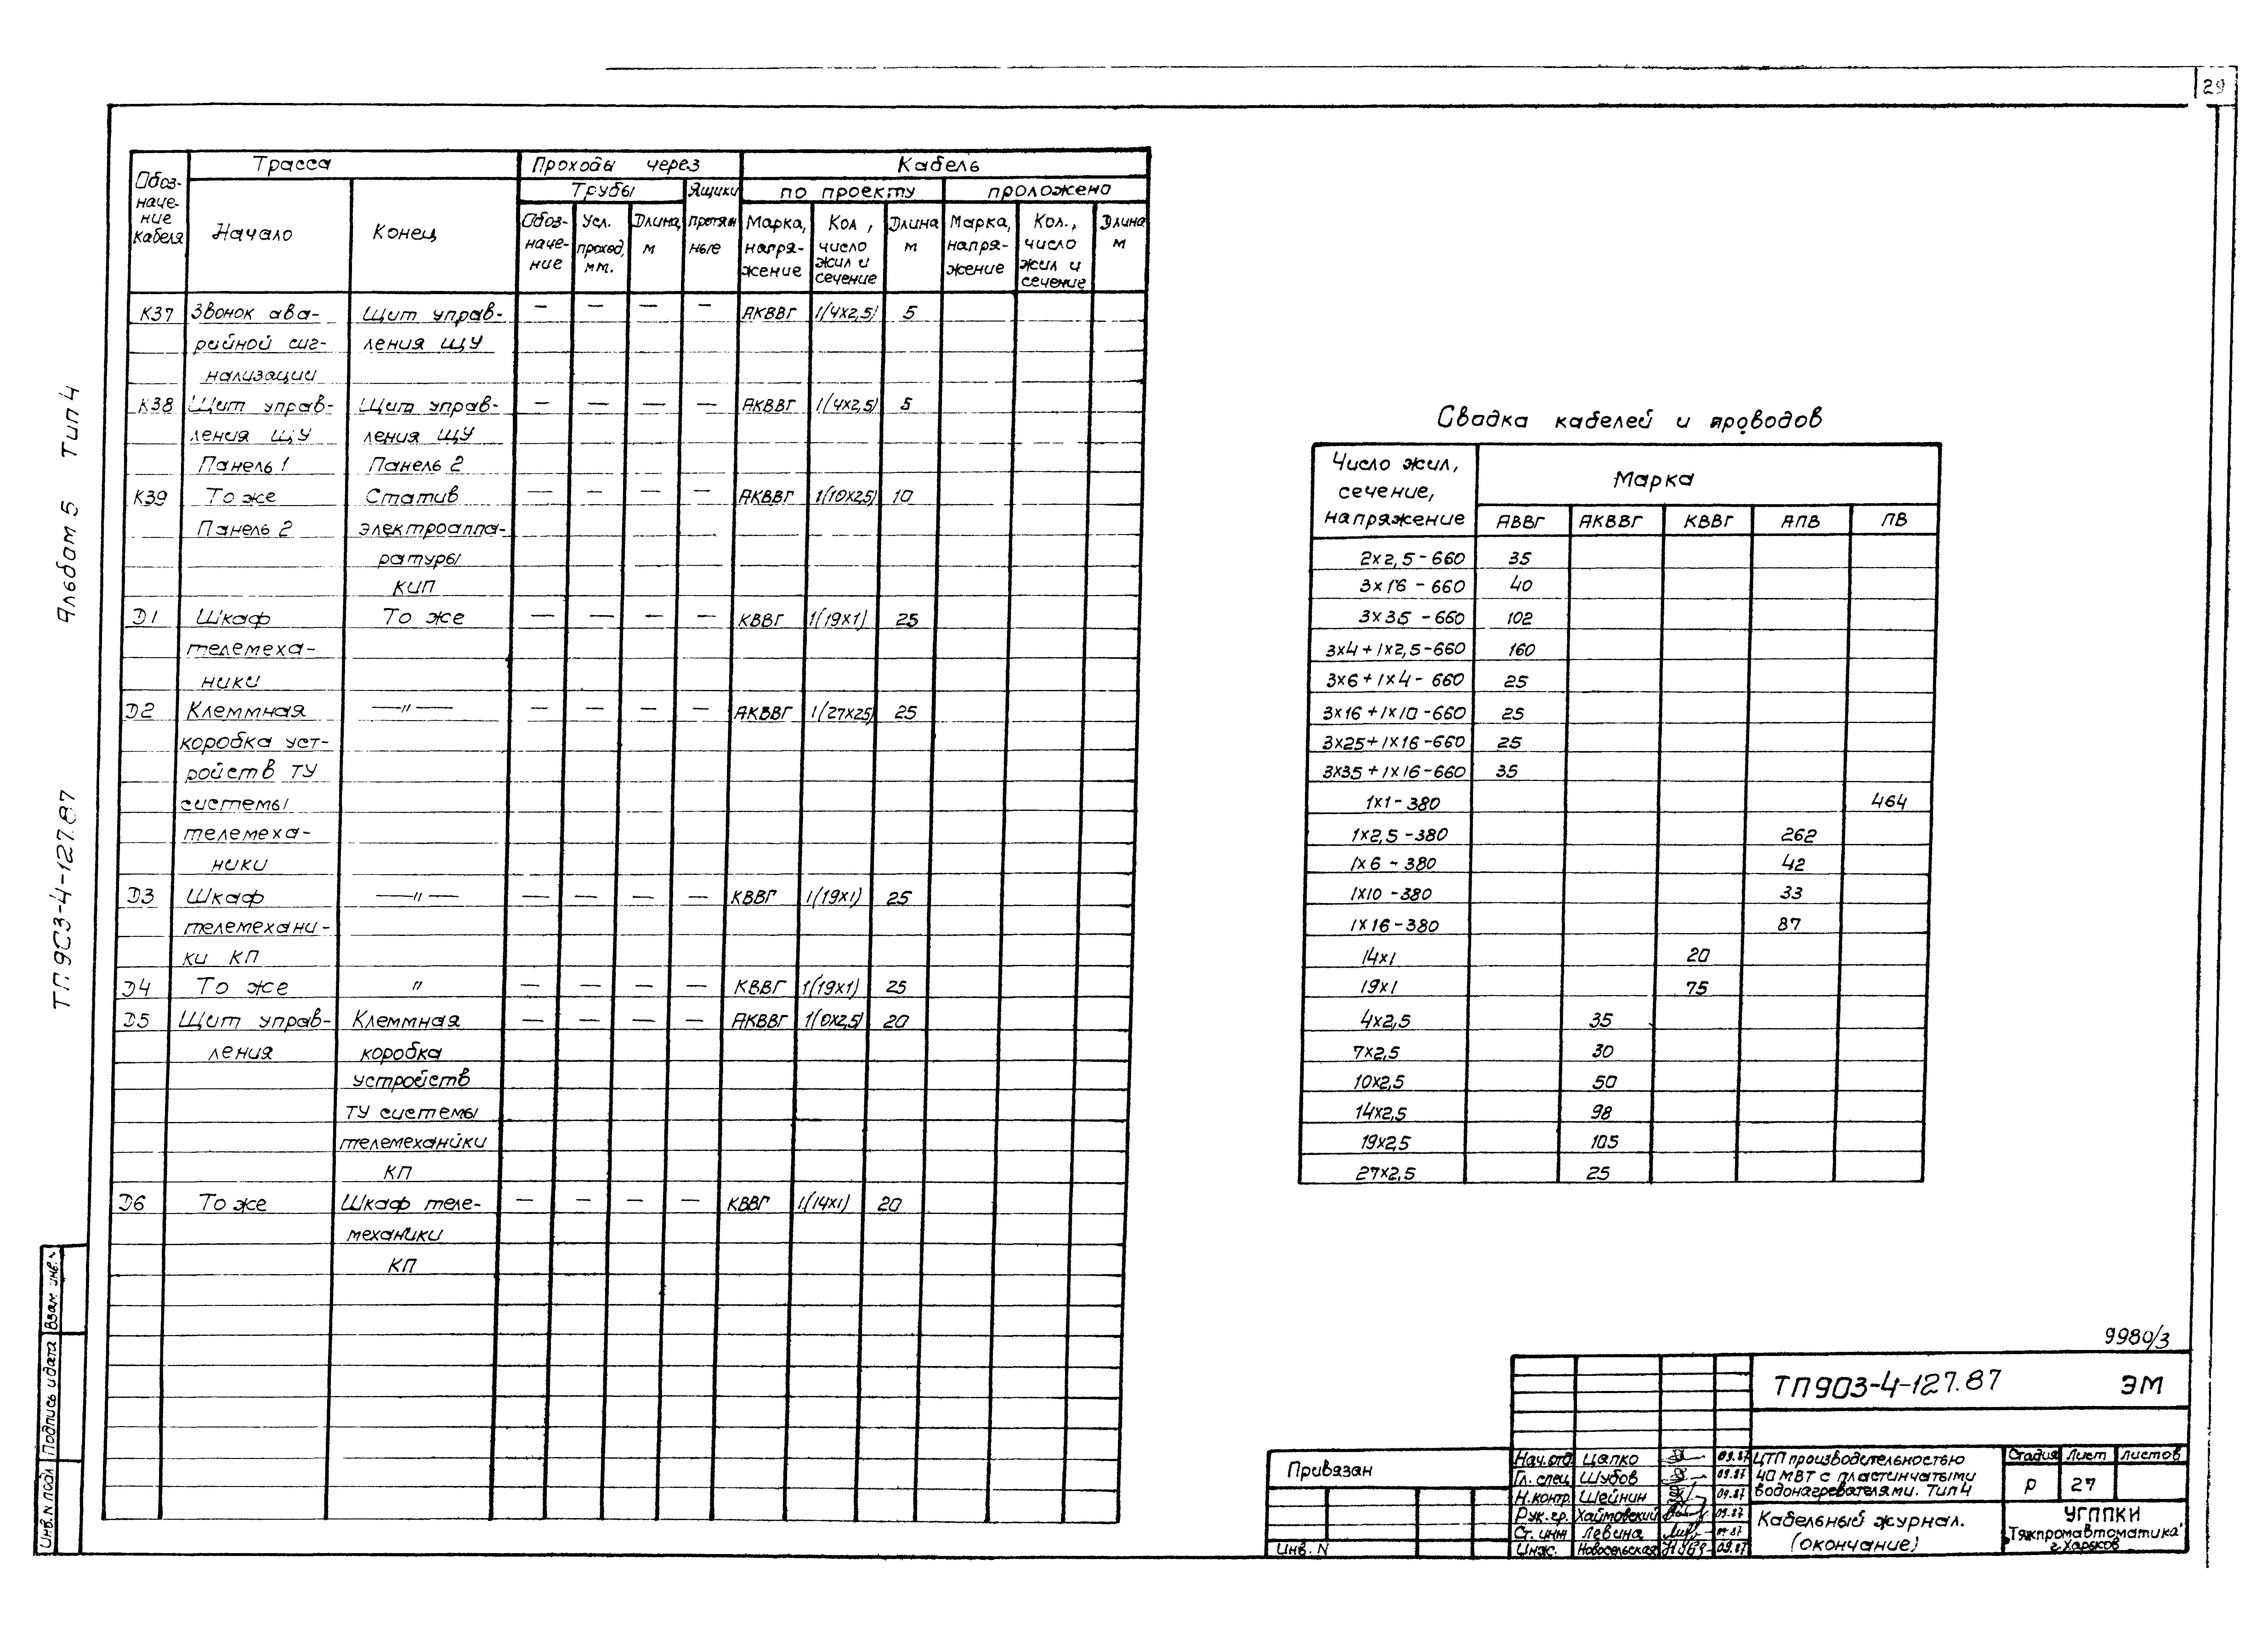 29
Альбом 5 Тип 4
ТП 903-4-127.87
Обоз-
наче-
ние
кабеля
Трасса
Начало
Конец
Проходы через
Трубы
Ящики
протяж
ные
Обоз-
наче-
ние
Усл.
проход,
мм.
Длина,
м
Кабель
по проекту
проложено
Марка,
напря-
жение
Кол,
число
жил и
сечение
Длина
м
Марка,
напря-
жение
Кол.,
число
жил и
сечение
Длина
м
К37 Звонок ава- Щит управ- — — — — АКВВГ 1(4х2,5) 5
рийной сиг- ления ЩУ
нализации
К38 Щит управ- Щит управ- — — — — АКВВГ 1(4х2,5) 5
ления ЩУ ления ЩУ
Панель 1 Панель 2
К39 То же Статив — — — — АКВВГ 1(10х2,5) 10
Панель 2 электроаппа-
ратуры
КИП
D1 Шкаф То же — — — — КВВГ 1(19х1) 25
телемеха-
ники
D2 Клеммная —"— — — — — АКВВГ 1(27х2,5) 25
коробка уст-
ройств ТУ
системы
телемеха-
ники
D3 Шкаф —"— — — — — КВВГ 1(19х1) 25
телемехани-
ки КП
D4 То же " — — — — КВВГ 1(19х1) 25
D5 Щит управ- Клеммная — — — — АКВВГ 1(10х2,5) 20
ления коробка
устройств
ТУ системы
телемеханики
КП
D6 То же Шкаф теле- — — — — КВВГ 1(14х1) 20
механики
КП
Сводка кабелей и проводов
Число жил,
сечение,
напряжение
Марка
АВВГ АКВВГ КВВГ АПВ ПВ
2х2,5-660 35
3х16-660 40
3х35-660 102
3х4+1х2,5-660 160
3х6+1х4-660 25
3х16+1х10-660 25
3х25+1х16-660 25
3х35+1х16-660 35
1х1-380 464
1х2,5-380 262
1х6-380 42
1х10-380 33
1х16-380 87
14х1 20
19х1 75
4х2,5 35
7х2,5 30
10х2,5 50
14х2,5 98
19х2,5 105
27х2,5 25
9980/3
ТП903-4-127.87 ЭМ
Привязан
Инв. N
Нач.отд Цапко 09.87
Гл. спец Шубов 09.87
Н.контр. Шейнин 09.87
Рук.гр. Хаймовский 09.87
Ст. инж Левина 09.87
Инж. Новосельская 09.87
ЦТП производительностью
40 МВт с пластинчатыми
водонагревателями. Тип 4
Стадия Лист Листов
Р 27
Кабельный журнал.
(окончание)
УГППКИ
"Тяжпромавтоматика"
г. Харьков
Инв. N подл Подпись и дата Взам. инв. N